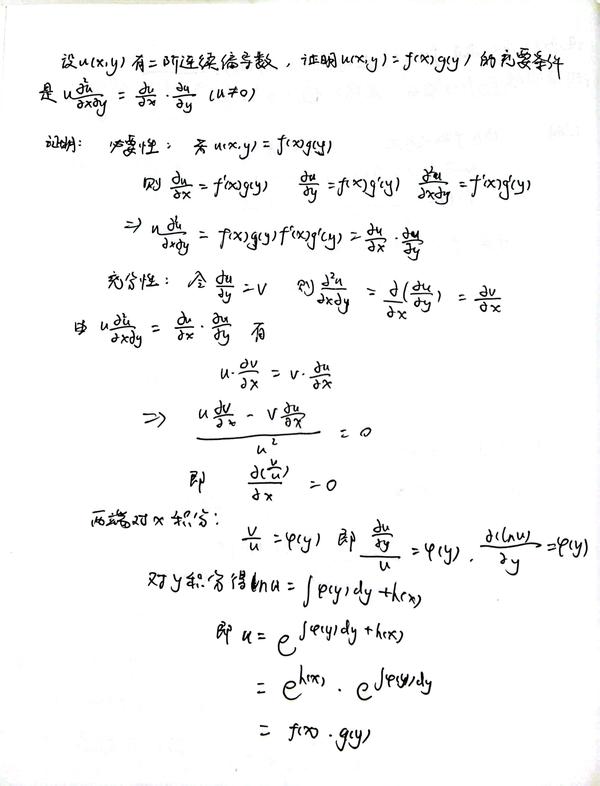 设u(x,y)有二阶连续偏导数，证明u(x,y)=f(x)g(y)的充要条件
是 u ∂²u/∂x∂y = ∂u/∂x · ∂u/∂y (u≠0)
证明: 必要性: 若 u(x,y)=f(x)g(y)
则 ∂u/∂x = f'(x)g(y) ∂u/∂y = f(x)g'(y) ∂²u/∂x∂y = f'(x)g'(y)
⇒ u ∂²u/∂x∂y = f(x)g(y)f'(x)g'(y) = ∂u/∂x · ∂u/∂y
充分性: 令 ∂u/∂y = v 则 ∂²u/∂x∂y = ∂/∂x (∂u/∂y) = ∂v/∂x
由 u ∂²u/∂x∂y = ∂u/∂x · ∂u/∂y 有
u · ∂v/∂x = v · ∂u/∂x
⇒ (u ∂v/∂x - v ∂u/∂x)/u² = 0
即 ∂(v/u)/∂x = 0
两端对x积分: v/u = φ(y) 即 (∂u/∂y)/u = φ(y), ∂(lnu)/∂y = φ(y)
对y积分得 lnu = ∫φ(y)dy + h(x)
即 u = e^(∫φ(y)dy + h(x))
= e^(h(x)) · e^(∫φ(y)dy)
= f(x) · g(y)